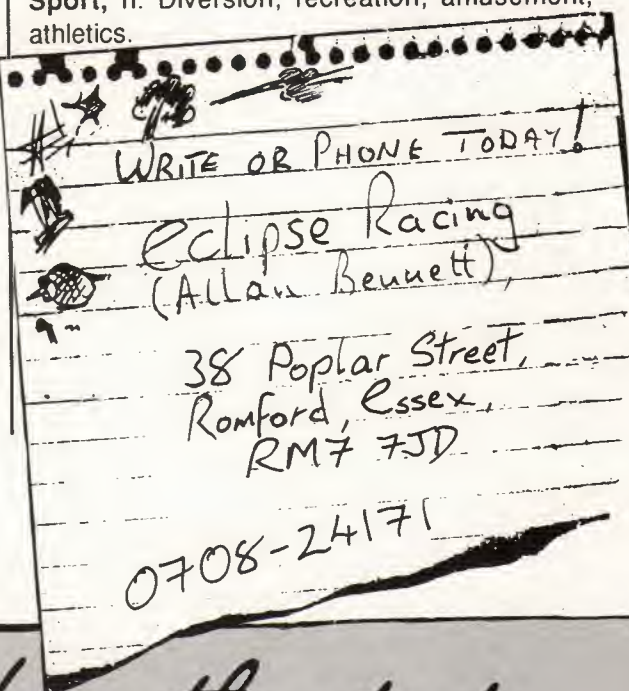 Sport, n. Diversion, recreation, amusement,
athletics.
WRITE OR PHONE TODAY!
eclipse Racing
(Allan Bennett),
38 Poplar Street,
Romford, Essex,
RM7 7JD
0708-24171